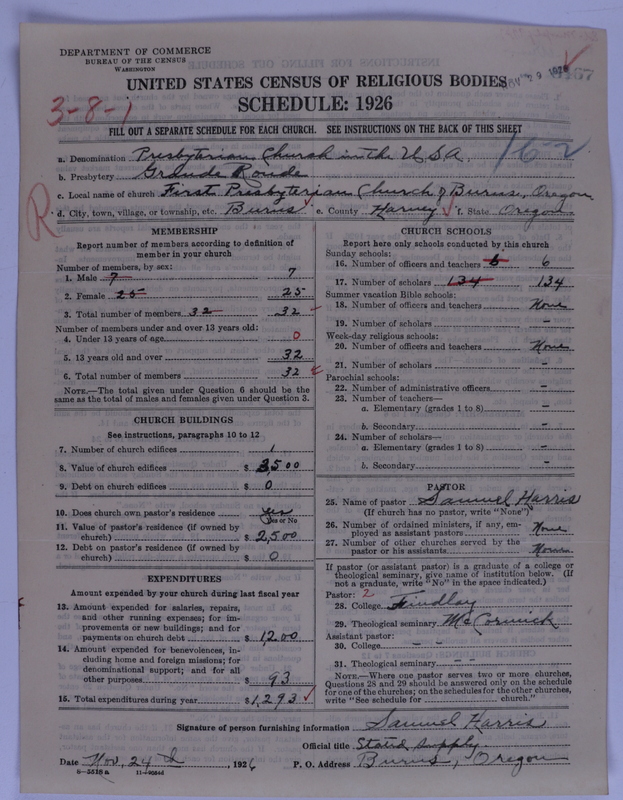 DEPARTMENT OF COMMERCE
BUREAU OF THE CENSUS
WASHINGTON
UNITED STATES CENSUS OF RELIGIOUS BODIES
SCHEDULE: 1926
3-8-1
FILL OUT A SEPARATE SCHEDULE FOR EACH CHURCH. SEE INSTRUCTIONS ON THE BACK OF THIS SHEET
162
a. Denomination Presbyterian Church in the U S A.
b. Presbytery Grande Ronde
c. Local name of church First Presbyterian Church of Burns, Oregon
R
d. City, town, village, or township, etc. Burns e. County Harney f. State Oregon
MEMBERSHIP
Report number of members according to definition of member in your church
Number of members, by sex:
1. Male 7 7
2. Female 25 25
3. Total number of members 32 32
Number of members under and over 13 years old:
4. Under 13 years of age 0
5. 13 years old and over 32
6. Total number of members 32
NOTE.—The total given under Question 6 should be the same as the total of males and females given under Question 3.
CHURCH BUILDINGS
See instructions, paragraphs 10 to 12
7. Number of church edifices 1
8. Value of church edifices $ 3,500
9. Debt on church edifices $ 0
10. Does church own pastor's residence yes
Yes or No
11. Value of pastor's residence (if owned by church) $ 2,500
12. Debt on pastor's residence (if owned by church) $ 0
EXPENDITURES
Amount expended by your church during last fiscal year
13. Amount expended for salaries, repairs, and other running expenses; for improvements or new buildings; and for payments on church debt $ 1,200
14. Amount expended for benevolences, including home and foreign missions; for denominational support; and for all other purposes $ 93
15. Total expenditures during year $ 1,293
CHURCH SCHOOLS
Report here only schools conducted by this church
Sunday schools:
16. Number of officers and teachers 6 6
17. Number of scholars 134 134
Summer vacation Bible schools:
18. Number of officers and teachers None
19. Number of scholars –
Week-day religious schools:
20. Number of officers and teachers None
21. Number of scholars –
Parochial schools:
22. Number of administrative officers –
23. Number of teachers—
a. Elementary (grades 1 to 8) –
b. Secondary –
24. Number of scholars—
a. Elementary (grades 1 to 8) –
b. Secondary –
PASTOR
25. Name of pastor Samuel Harris
(If church has no pastor, write "None")
26. Number of ordained ministers, if any, employed as assistant pastors None
27. Number of other churches served by the pastor or his assistants None
If pastor (or assistant pastor) is a graduate of a college or theological seminary, give name of institution below. (If not a graduate, write "No" in the space indicated.)
Pastor: 2
28. College Findlay
29. Theological seminary McCormick
Assistant pastor:
30. College – –
31. Theological seminary – –
NOTE.—Where one pastor serves two or more churches, Questions 28 and 29 should be answered only on the schedule for one of the churches; on the schedules for the other churches, write "See schedule for church."
Signature of person furnishing information Samuel Harris
Official title Stated Supply
Date Nov. 24th, 1926 P. O. Address Burns, Oregon
8-5518a